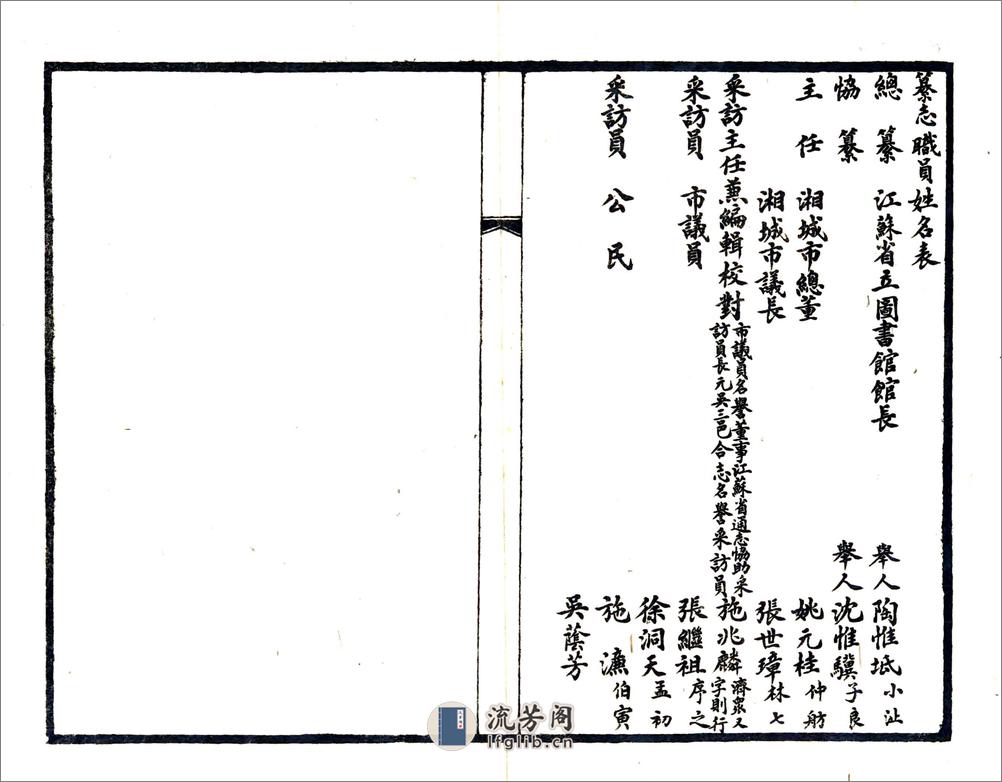 纂志職員姓名表
總纂 江蘇省立圖書館館長 舉人陶惟坻小沚
協纂 舉人沈惟驥子良
主任 湘城市總董 姚元桂仲舫
湘城市議長 張世璋林七
采訪主任兼編輯校對 市議員名譽董事江蘇省通志協助采訪員長元吳三邑合志名譽采訪員 施兆麟濟眾又字則行
采訪員 市議員 張繼祖序之
徐洞天孟初
采訪員 公民 施濂伯寅
吳蔭芳
流芳阁
lfglib.cn